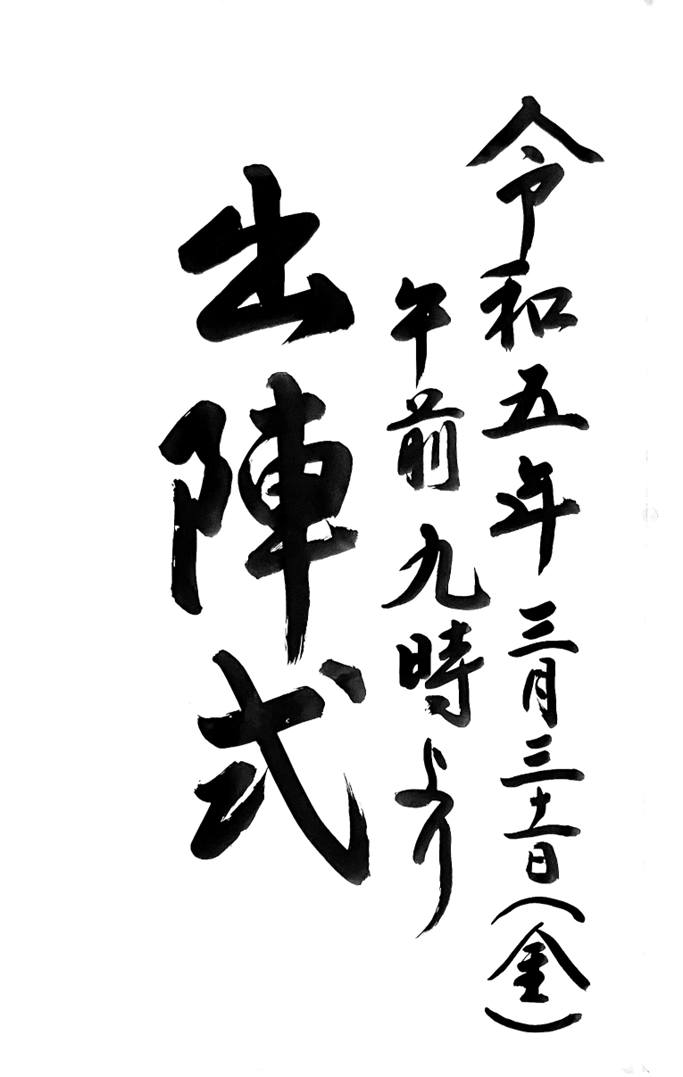 令和五年三月三十一日(金)
午前九時より
出陣式